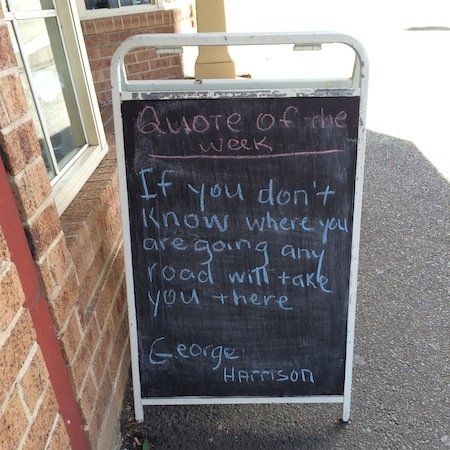 Quote of the
week
If you don't
know where you
are going any
road will take
you there
George
Harrison